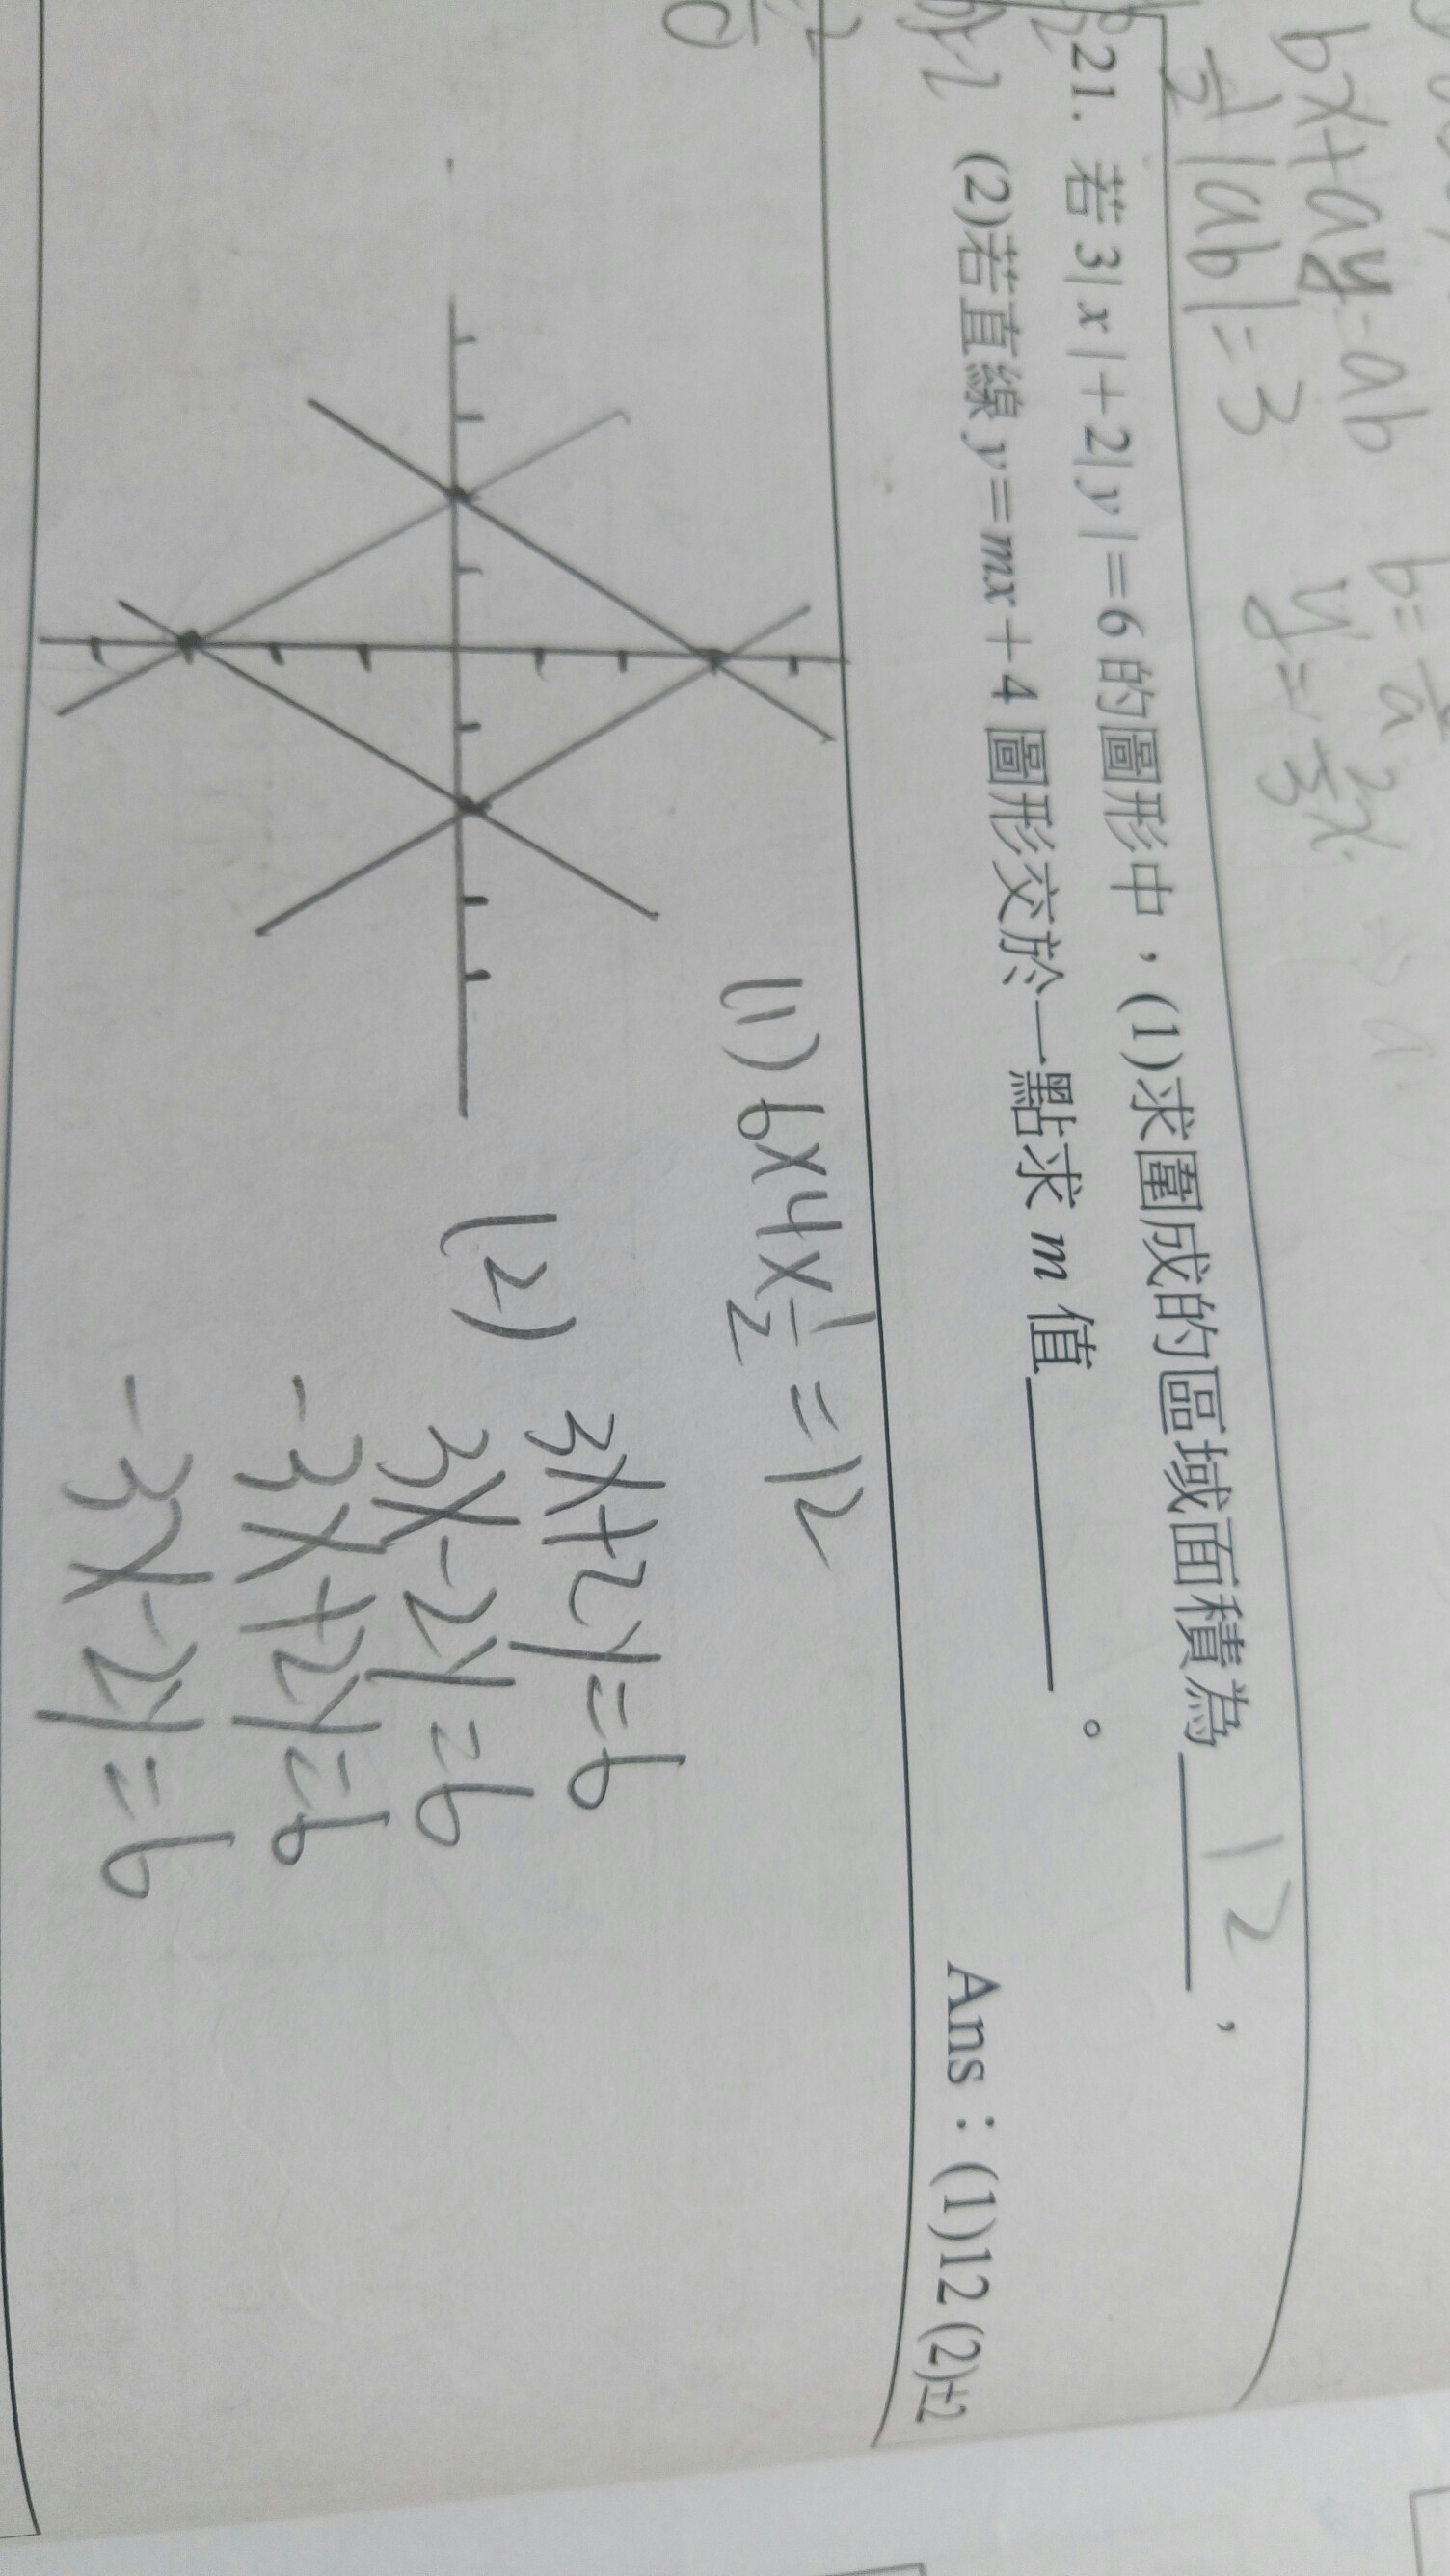 bx+ay=ab
½|ab|=3
21. 若 3|x|+2|y|=6 的圖形中，(1)求圍成的區域面積為 12 ，
(2)若直線 y=mx+4 圖形交於一點求 m 值______。
Ans：(1)12 (2)±2
(1) 6×4×½=12
(2) 3x+2y=6
3x-2y=6
-3x+2y=6
-3x-2y=6